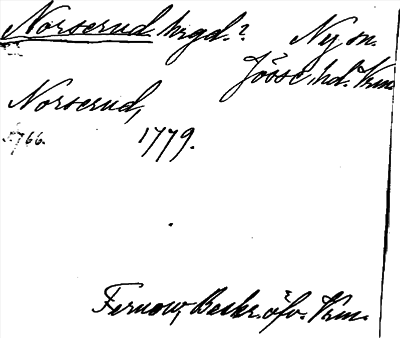 Norserud hrgd.? Ny sn.
Jösse hd. Vrm.
Norserud,
1779.
S. 766.
Fernow, Beskr. öfv. Vrm.